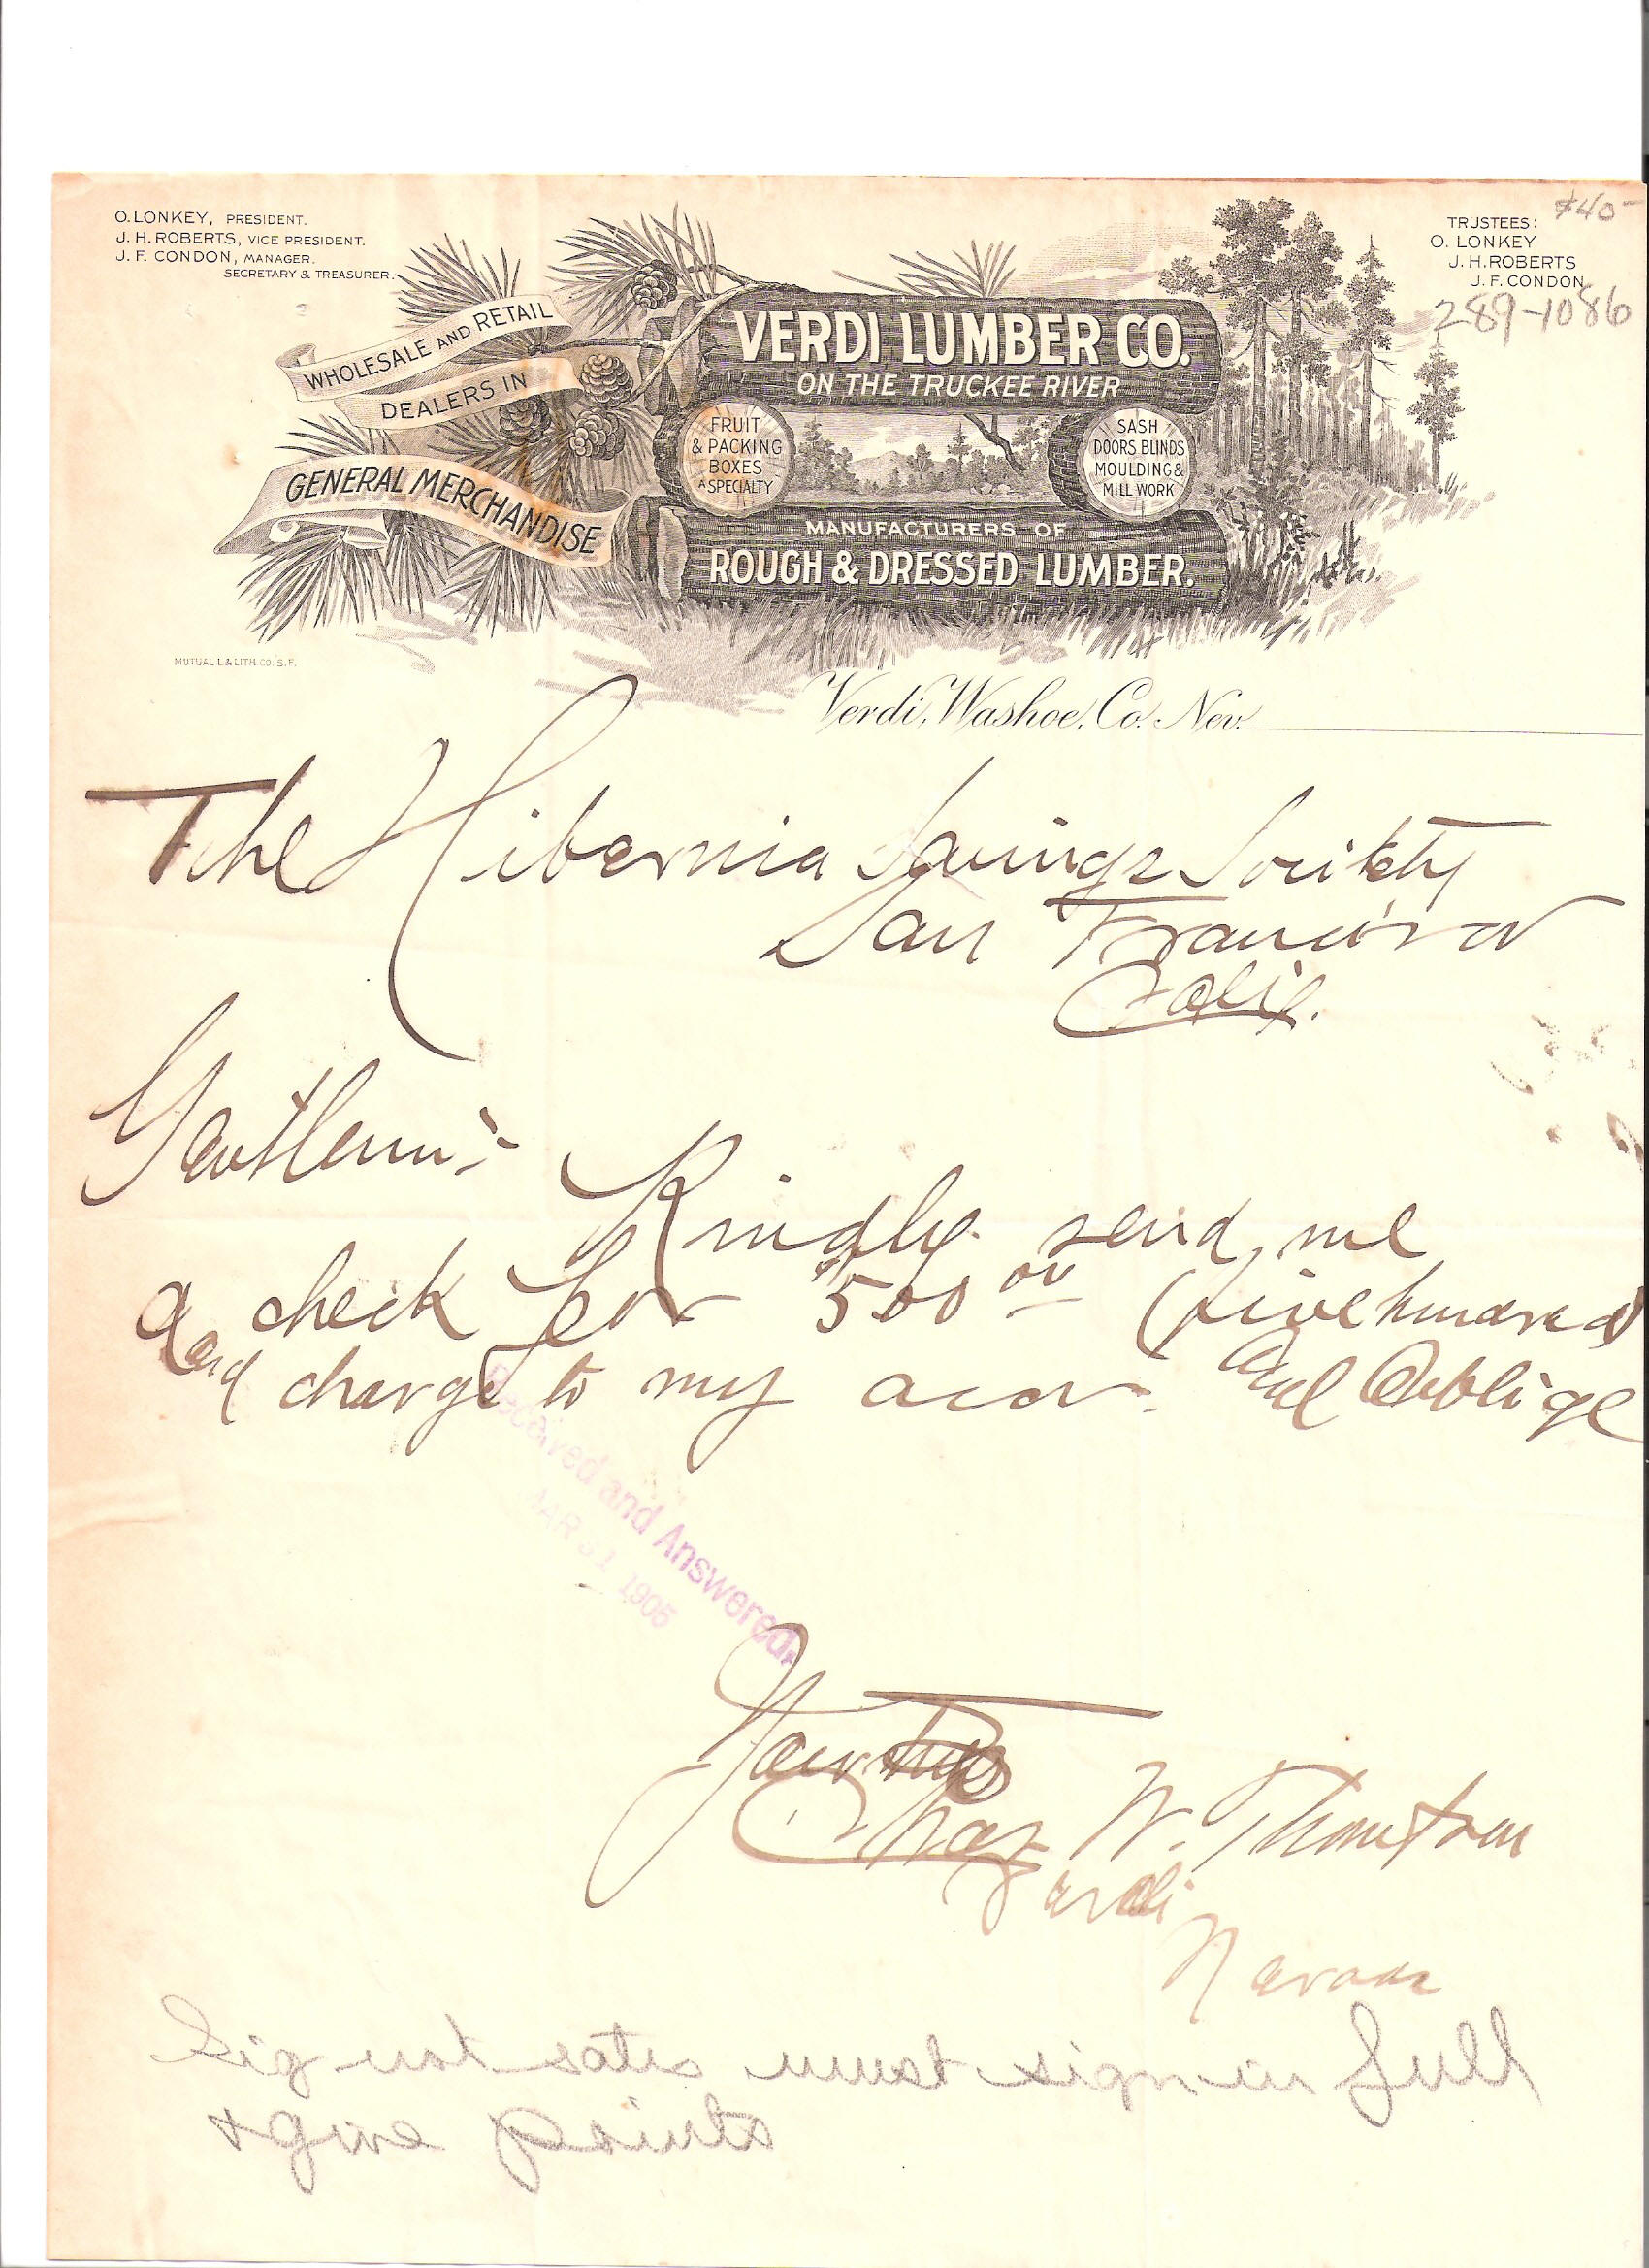 O. LONKEY, PRESIDENT.
J. H. ROBERTS, VICE PRESIDENT.
J. F. CONDON, MANAGER.
SECRETARY & TREASURER.
$40-
TRUSTEES:
O. LONKEY
J. H. ROBERTS
J. F. CONDON
289-1086
WHOLESALE AND RETAIL
DEALERS IN
GENERAL MERCHANDISE
VERDI LUMBER CO.
ON THE TRUCKEE RIVER
FRUIT
& PACKING
BOXES
A SPECIALTY
SASH
DOORS BLINDS
MOULDING &
MILL WORK
MANUFACTURERS OF
ROUGH & DRESSED LUMBER.
MUTUAL L. & LITH. CO. S.F.
Verdi, Washoe, Co. Nev.
The Hibernia Savings Society
San Francisco
Calif.
Gentlemen:-
Kindly send me
a check for $500 00 (five hundred)
and charge to my accr. and Obblige
Received and Answered,
MAR 31 1905
Yours
Chas W. Thomtson
Verdi
Nevada
Sig not satis must sign in full
+ give points